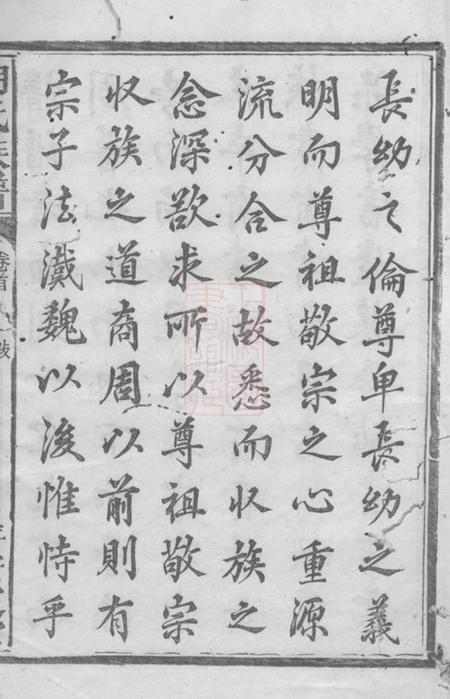 長幼之倫尊卑長幼之義
明而尊祖敬宗之心重源
流分合之故悉而収族之
念深欲求所以尊祖敬宗
収族之道商周以前則有
宗子法漢魏以後惟恃乎
卷首